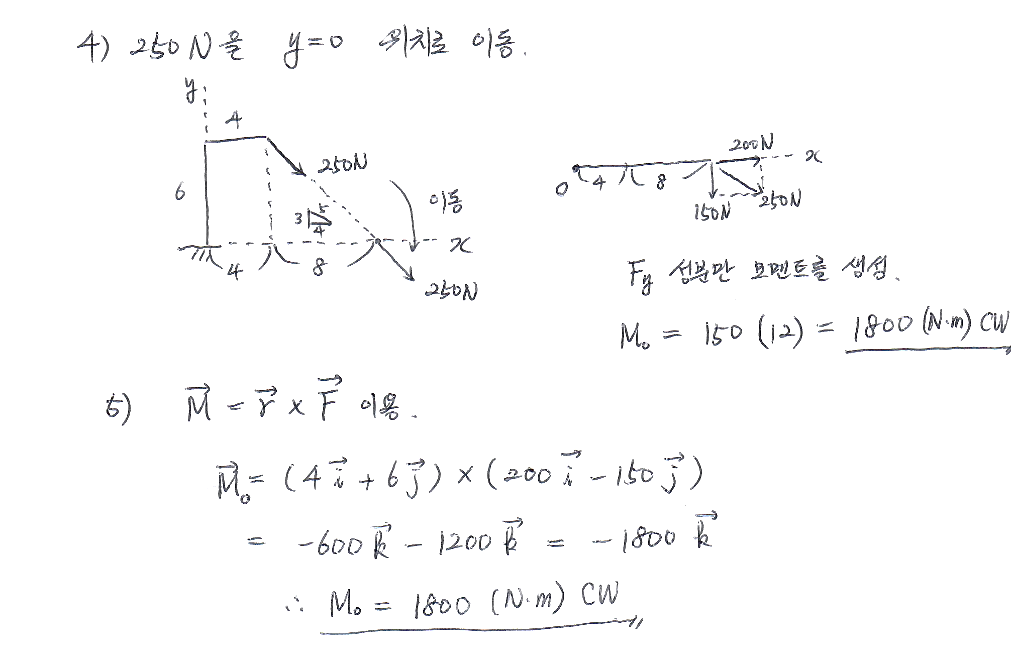 4) 250N을 y=0 위치로 이동.
y
4
250N
6
이동
3 5 4
x
4 8
250N
200N
x
O 4 8
150N 250N
Fy 성분만 모멘트를 생성.
M₀ = 150 (12) = 1800 (N·m) CW
5) M⃗ = r⃗ × F⃗ 이용.
M⃗₀ = (4i⃗ + 6j⃗) × (200i⃗ - 150j⃗)
= -600k⃗ - 1200k⃗ = -1800k⃗
∴ M₀ = 1800 (N·m) CW